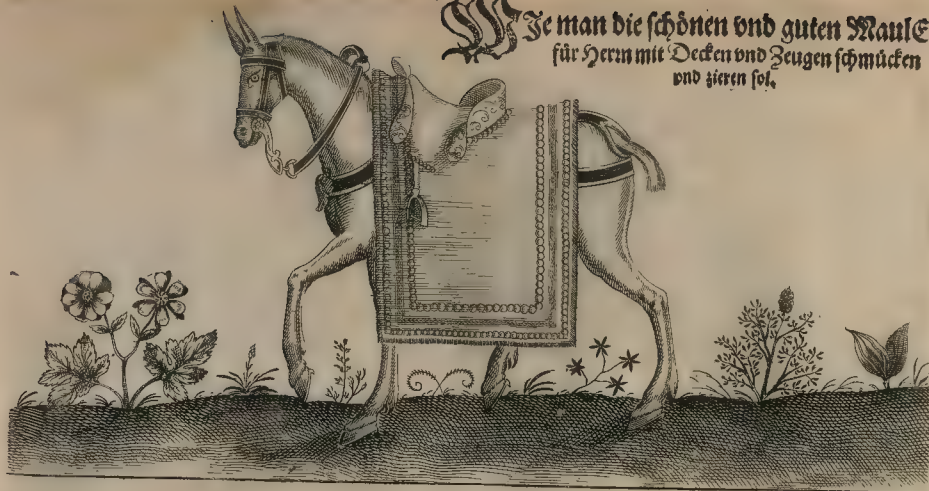 WJe man die ſchönen vnd guten MaulE
für Herrn mit Decken vnd Zeugen ſchmücken
vnd zieren ſol.